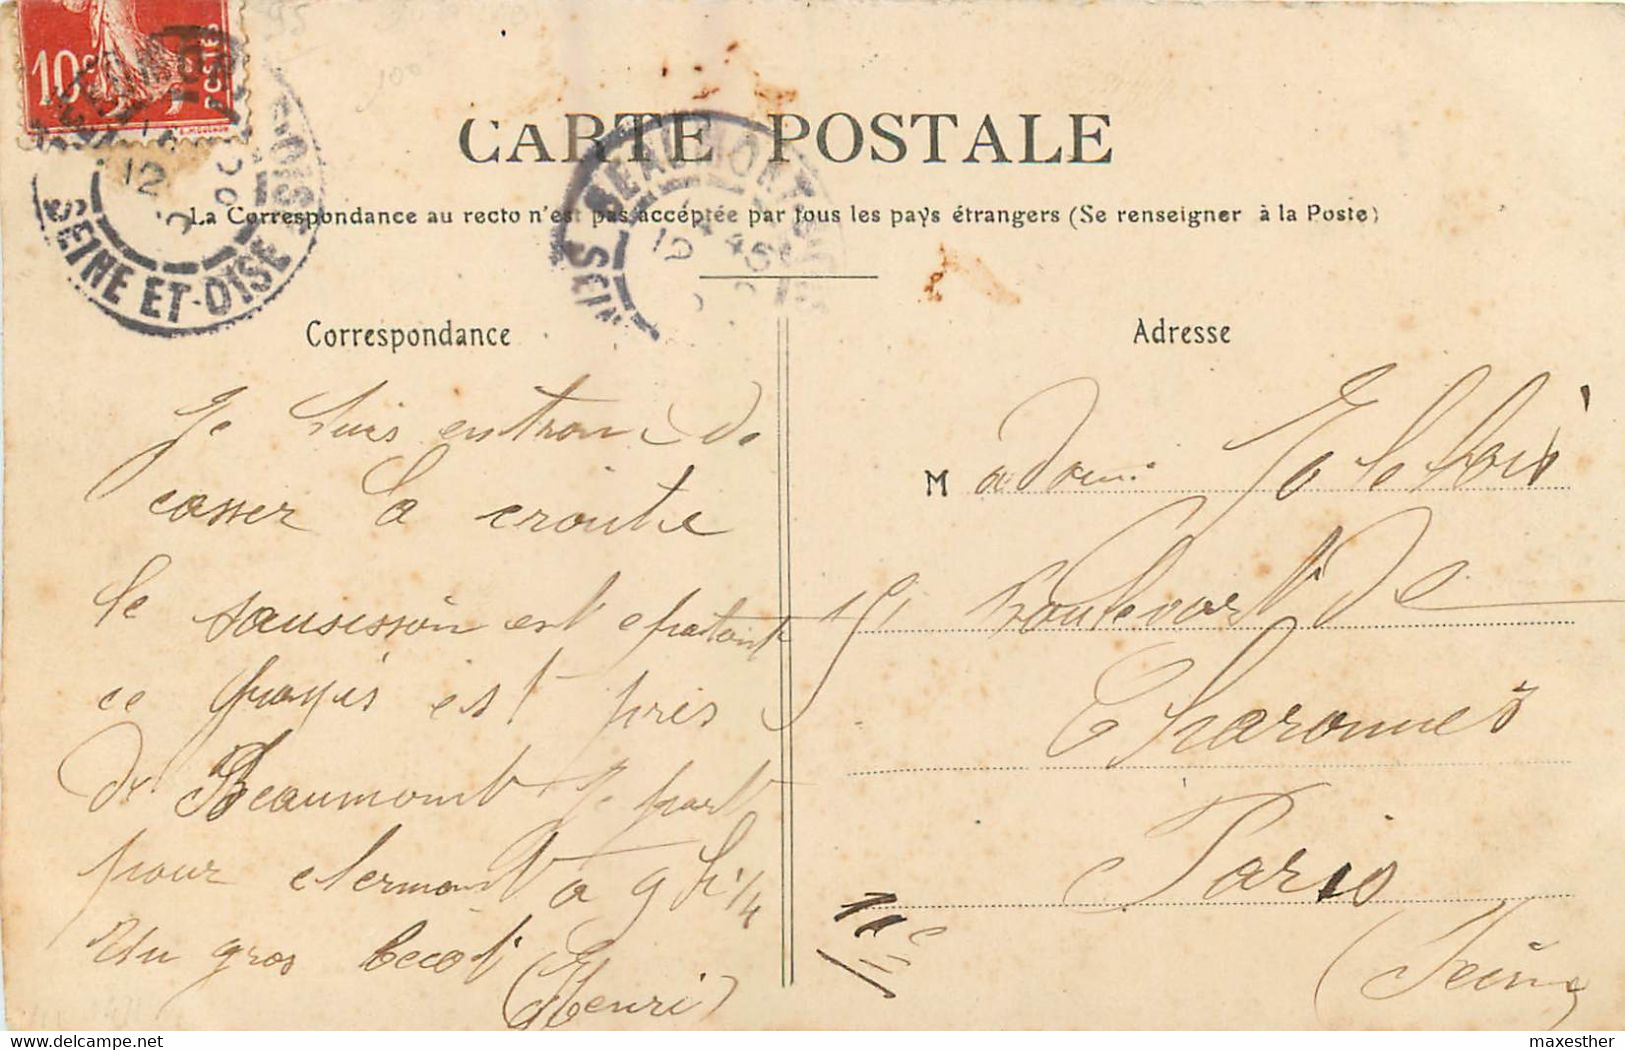 10c
POSTES
SEINE-ET-OISE
BEAUMONT
CARTE POSTALE
La Correspondance au recto n'est pas acceptée par tous les pays étrangers (Se renseigner à la Poste)
Correspondance
Je suis en train de
casser la croute
le saucisson est epatant
ce pays est près
de Beaumont Je part
pour clermont a 9 h 1/4
Un gros becot
(Henri)
Adresse
Madame
151 Boulevart de
Charonnes
Paris
11e
(Seine)
www.delcampe.net
maxesther